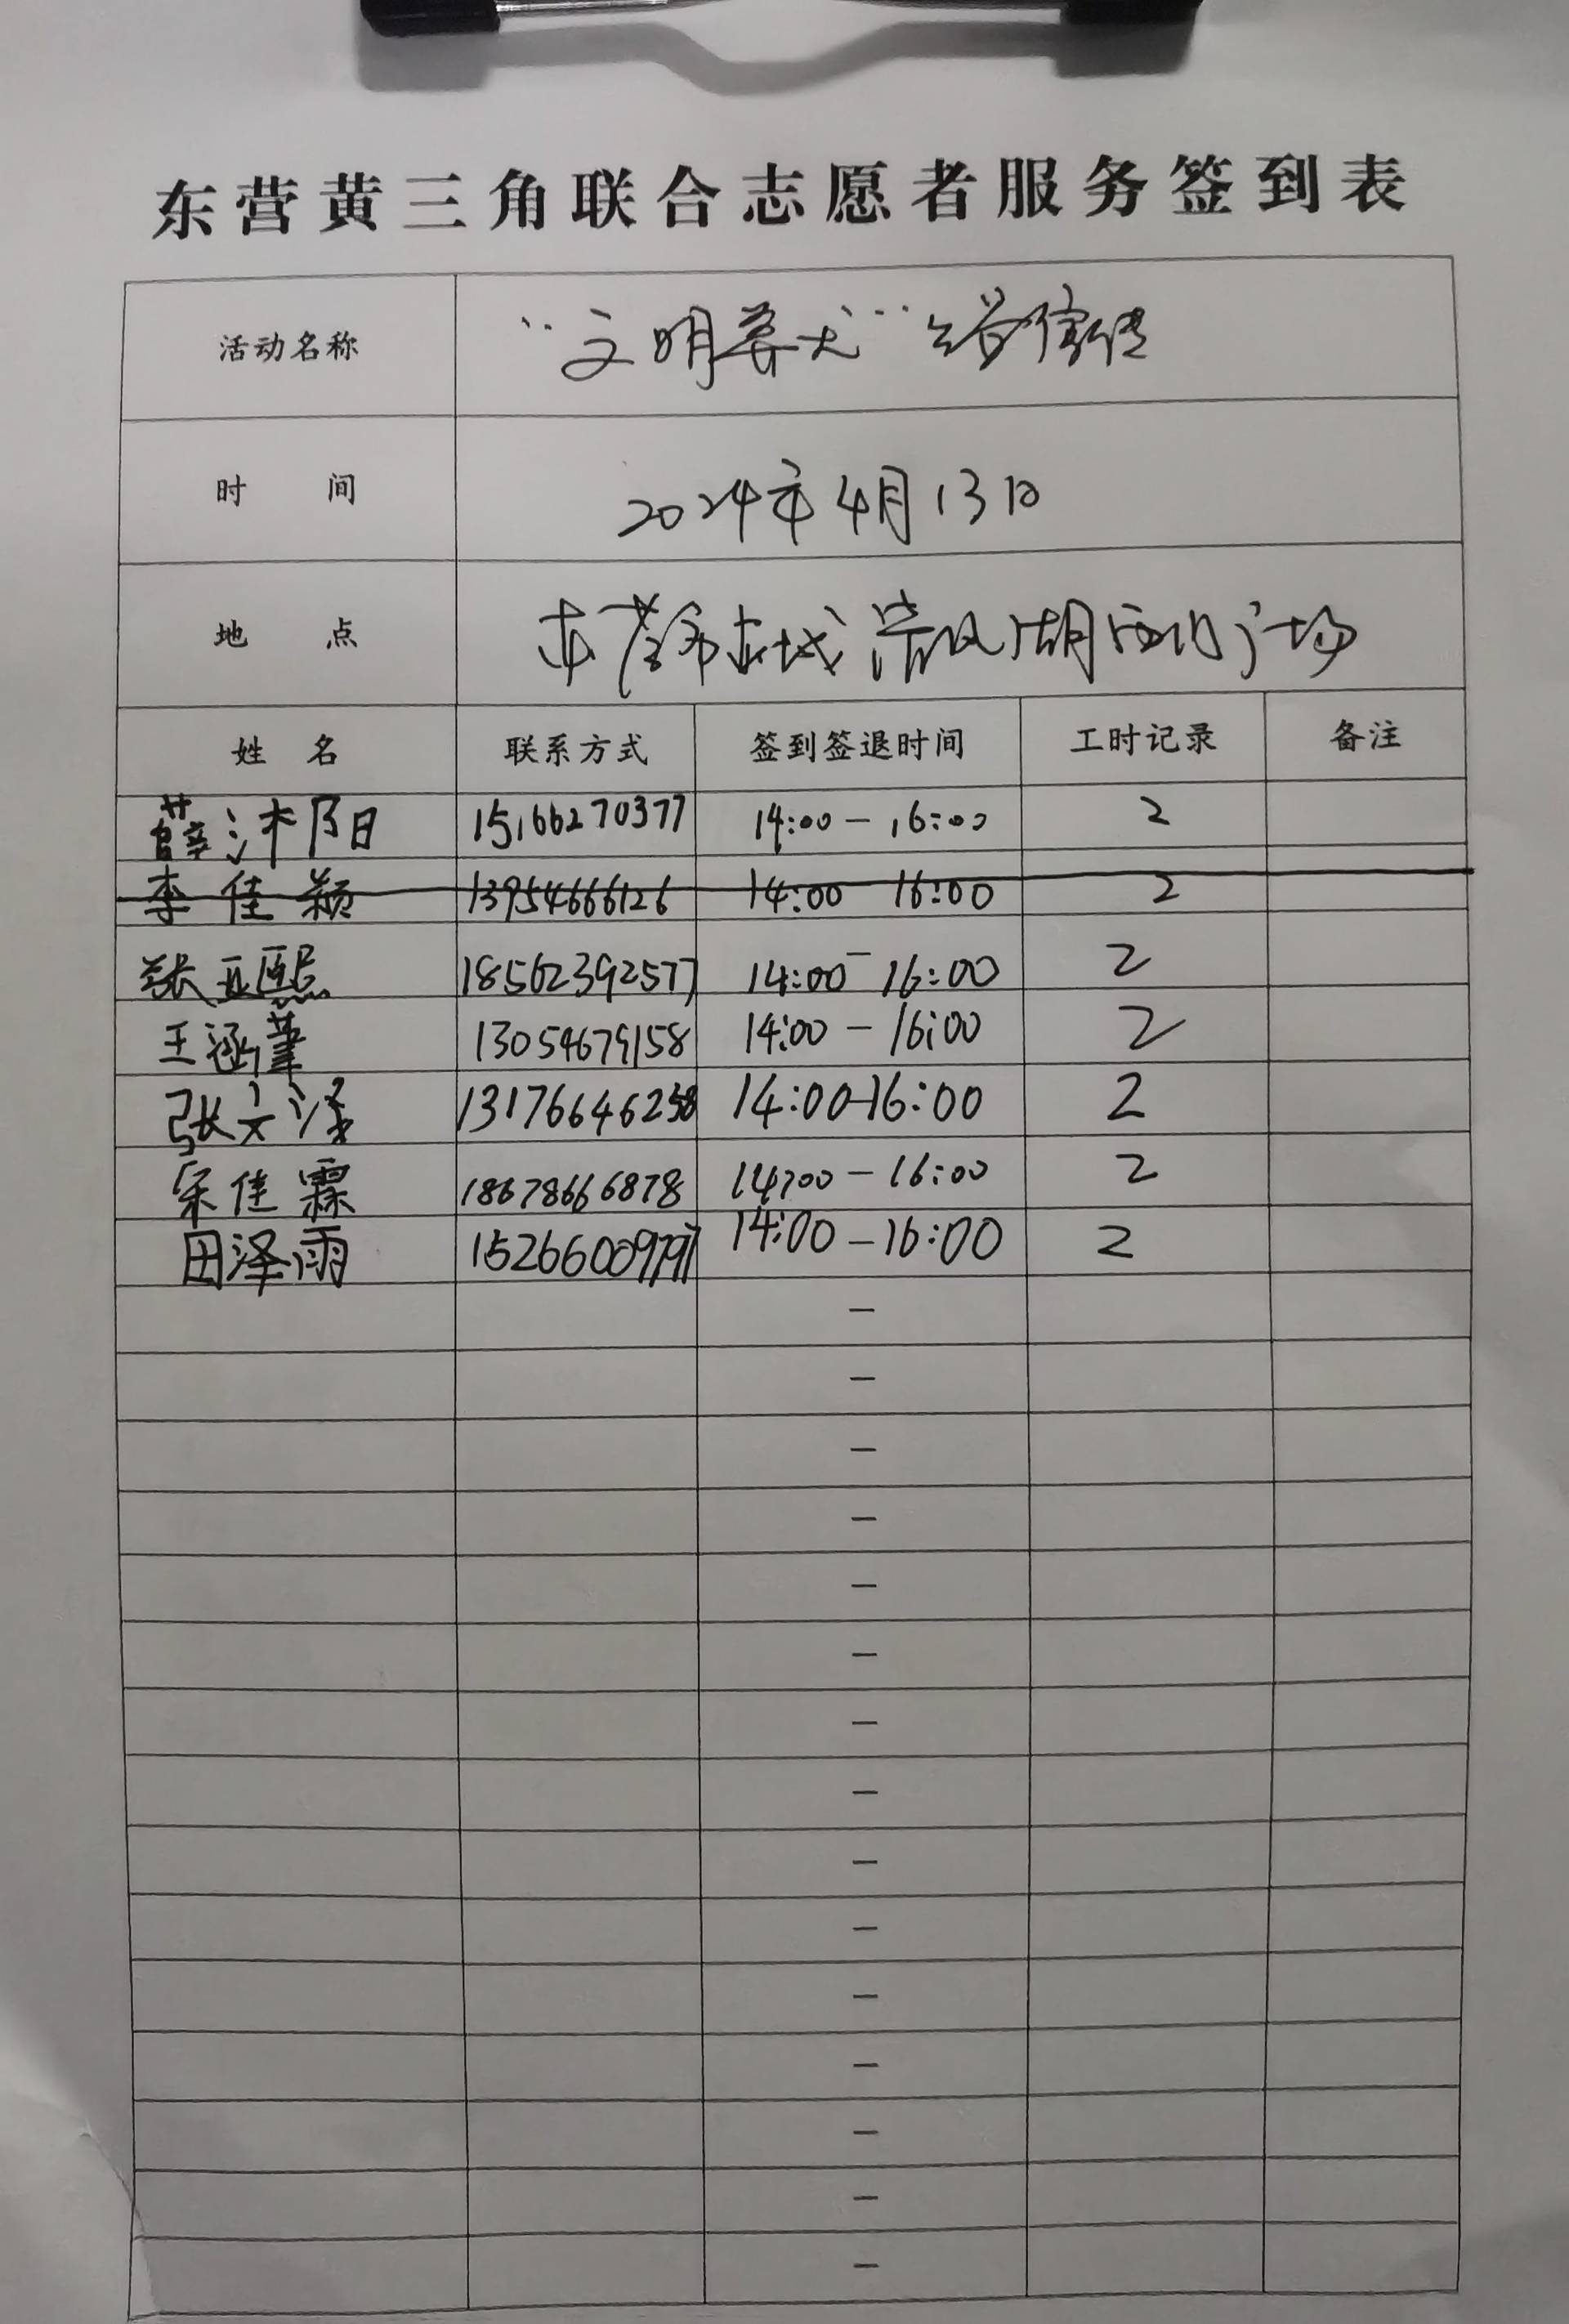 东营黄三角联合志愿者服务签到表
活动名称 “文明养犬” 宣传
时 间 2024年4月13日
地 点 东营市东城清风湖西门广场
姓 名 联系方式 签到签退时间 工时记录 备注
薛沐阳 15166270377 14:00 — 16:00 2
李佳颖 13954666126 14:00 16:00 2
张亚熙 18562392577 14:00 — 16:00 2
王涵菫 13054679158 14:00 — 16:00 2
张文泽 13176646238 14:00-16:00 2
宋佳霖 18678666878 14:00 — 16:00 2
田泽雨 1526600979 14:00 — 16:00 2
—
—
—
—
—
—
—
—
—
—
—
—
—
—
—